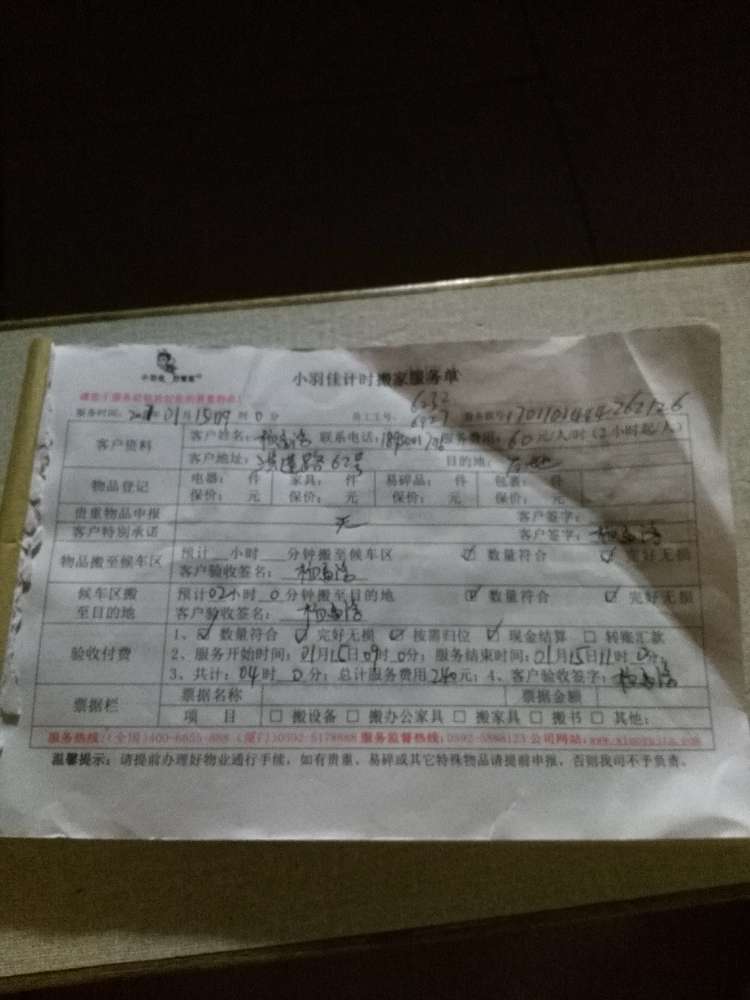 小羽佳计时搬家服务单
服务时间: 01月15日09时0分 员工工号: 6232 6427 服务账号:
客户资料 客户姓名: 联系电话: 服务费用: 60元/人/时 (2小时起/人)
客户地址: 62号 目的地:
物品登记 电器: 件 家具: 件 易碎品: 件 包裹: 件
保价: 元 保价: 元 保价: 元 保价: 元
贵重物品申报 无 客户签字:
客户特别承诺 客户签字:
物品搬至候车区 预计__小时__分钟搬至候车区 ☑ 数量符合 ☑ 完好无损
客户验收签名:
候车区搬至目的地 预计02小时0分钟搬至目的地 ☑ 数量符合 ☑ 完好无损
客户验收签名:
验收付费 1、☑ 数量符合 ☑ 完好无损 ☑ 按需归位 ☑ 现金结算 □ 转账汇款
2、服务开始时间: 01月15日09时0分; 服务结束时间: 01月15日11时0分;
3、共计: 04时0分; 总计服务费用240元; 4、客户验收签字:
票据栏 票据名称 票据金额
项 目 □ 搬设备 □ 搬办公家具 □ 搬家具 □ 搬书 □ 其他:
服务热线: (全国)400-6655-888 (厦门)0592-5178888 服务监督热线: 公司网站:
温馨提示: 请提前办理好物业通行手续, 如有贵重、易碎或其它特殊物品请提前申报, 否则我司不予负责。